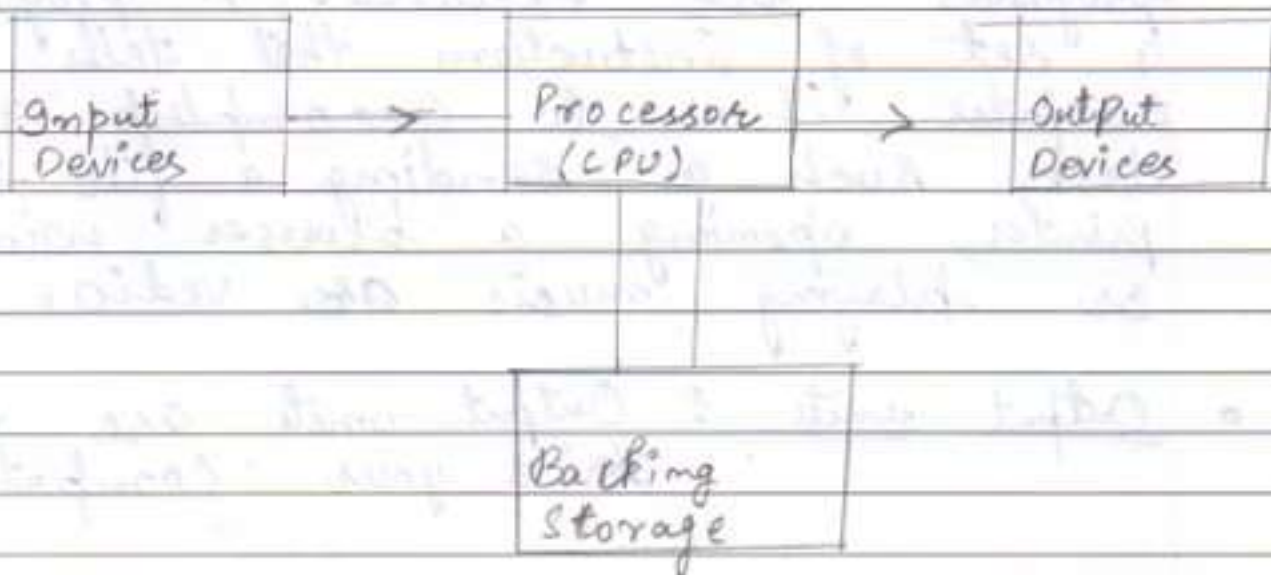 Input
Devices
Processor
(CPU)
Output
Devices
Backing
Storage